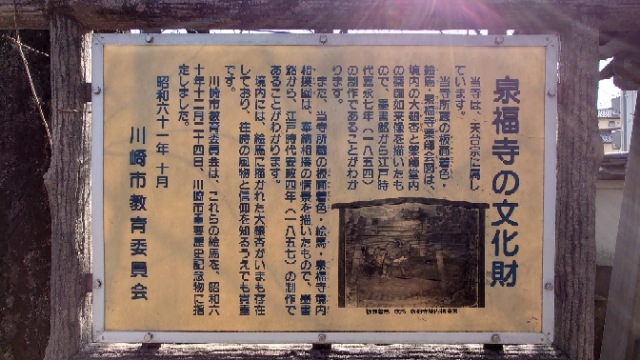 泉福寺の文化財
当寺は、天台宗に属し
ています。
当寺所蔵の板面着色・
絵馬・泉福寺薬師会図は、
境内の大銀杏と薬師堂内
の薬師如来像を描いたも
ので、墨書銘から江戸時
代嘉永七年(一八五四)
の制作であることがわか
ります。
また、当寺所蔵の板面着色・絵馬・泉福寺境内
相撲図は、奉納相撲の情景を描いたもので、墨書
銘から、江戸時代安政四年(一八五七)の制作で
あることがわかります。
境内には、絵馬に描かれた大銀杏がいまも存在
しており、往時の風物と信仰を知るうえでも貴重
です。
川崎市教育委員会は、これらの絵馬を、昭和六
十年十二月二十四日、川崎市重要歴史記念物に指
定しました。
昭和六十一年十月
川崎市教育委員会